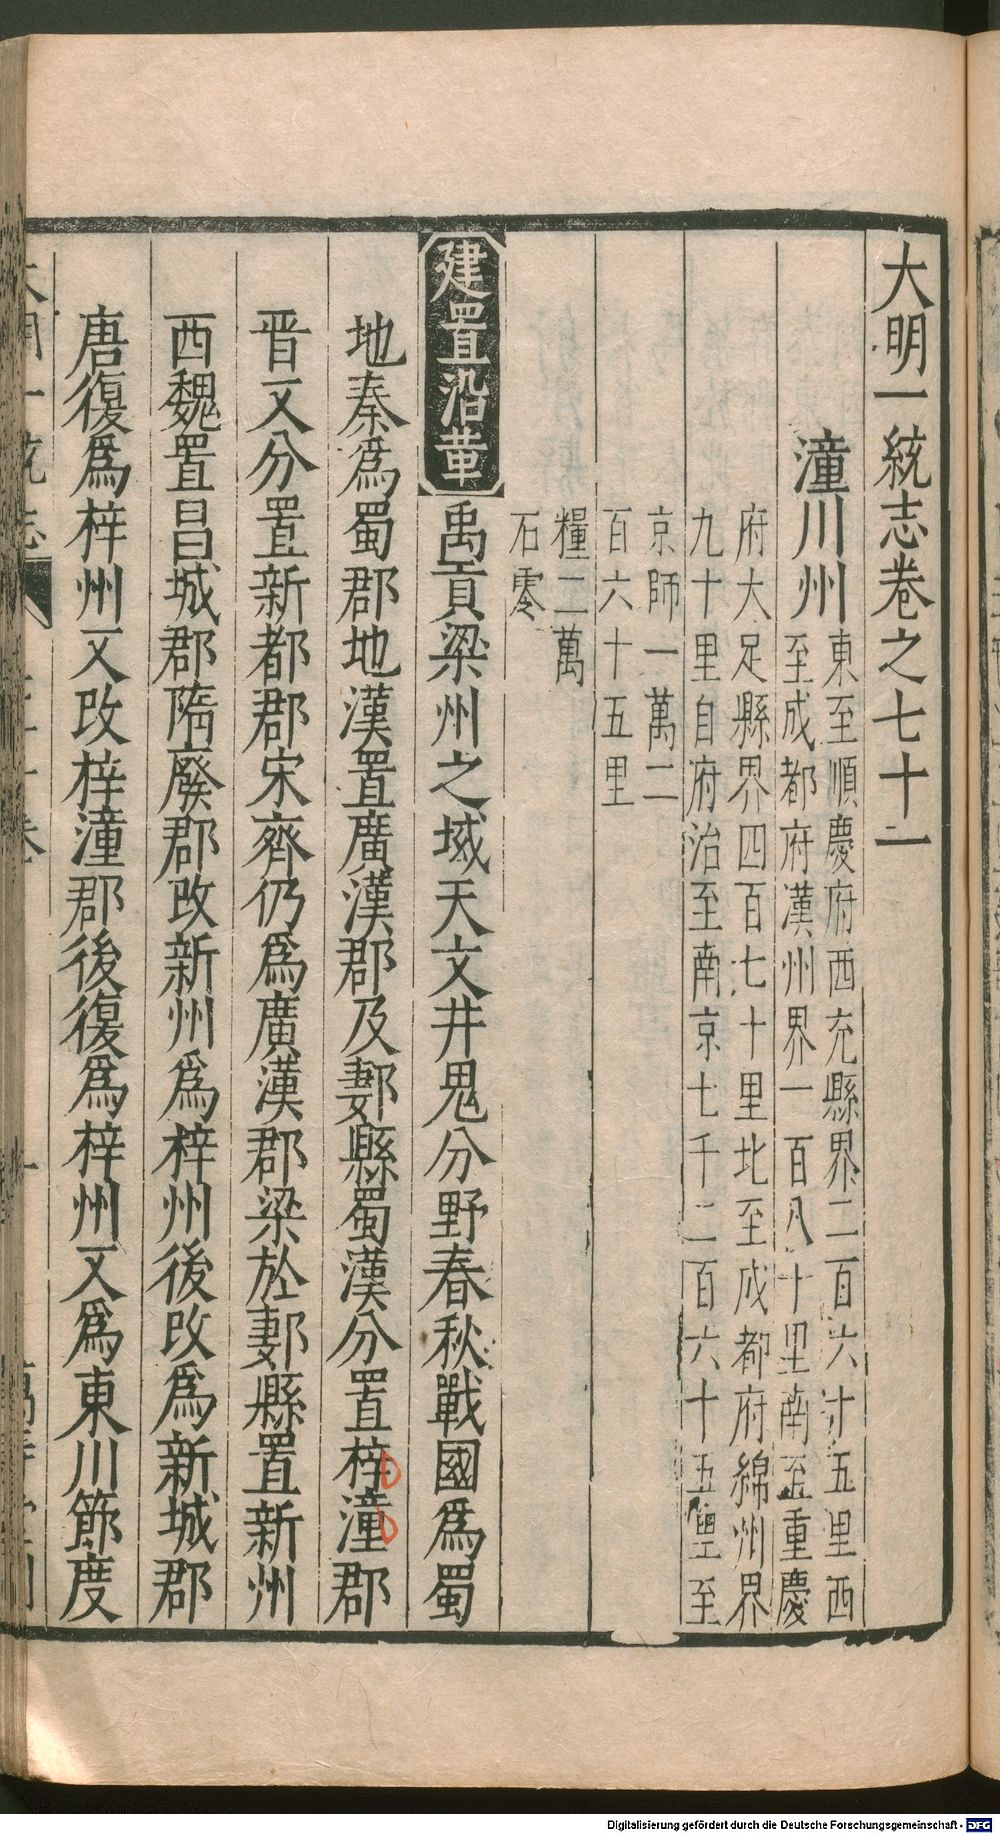 大明一統志卷之七十一
潼川州
東至順慶府西充縣界二百六十五里西
至成都府漢州界一百八十里南至重慶
府大足縣界四百七十里北至成都府綿州界
九十里自府治至南京七千二百六十五里至
京師一萬二
百六十五里
糧二萬
石零
建置沿革
禹貢梁州之域天文井鬼分野春秋戰國爲蜀
地秦爲蜀郡地漢置廣漢郡及郪縣蜀漢分置梓潼郡
晉又分置新都郡宋齊仍爲廣漢郡梁於郪縣置新州
西魏置昌城郡隋廢郡改新州爲梓州後改爲新城郡
唐復爲梓州又改梓潼郡後復爲梓州又爲東川節度
Digitalisierung gefördert durch die Deutsche Forschungsgemeinschaft - DFG